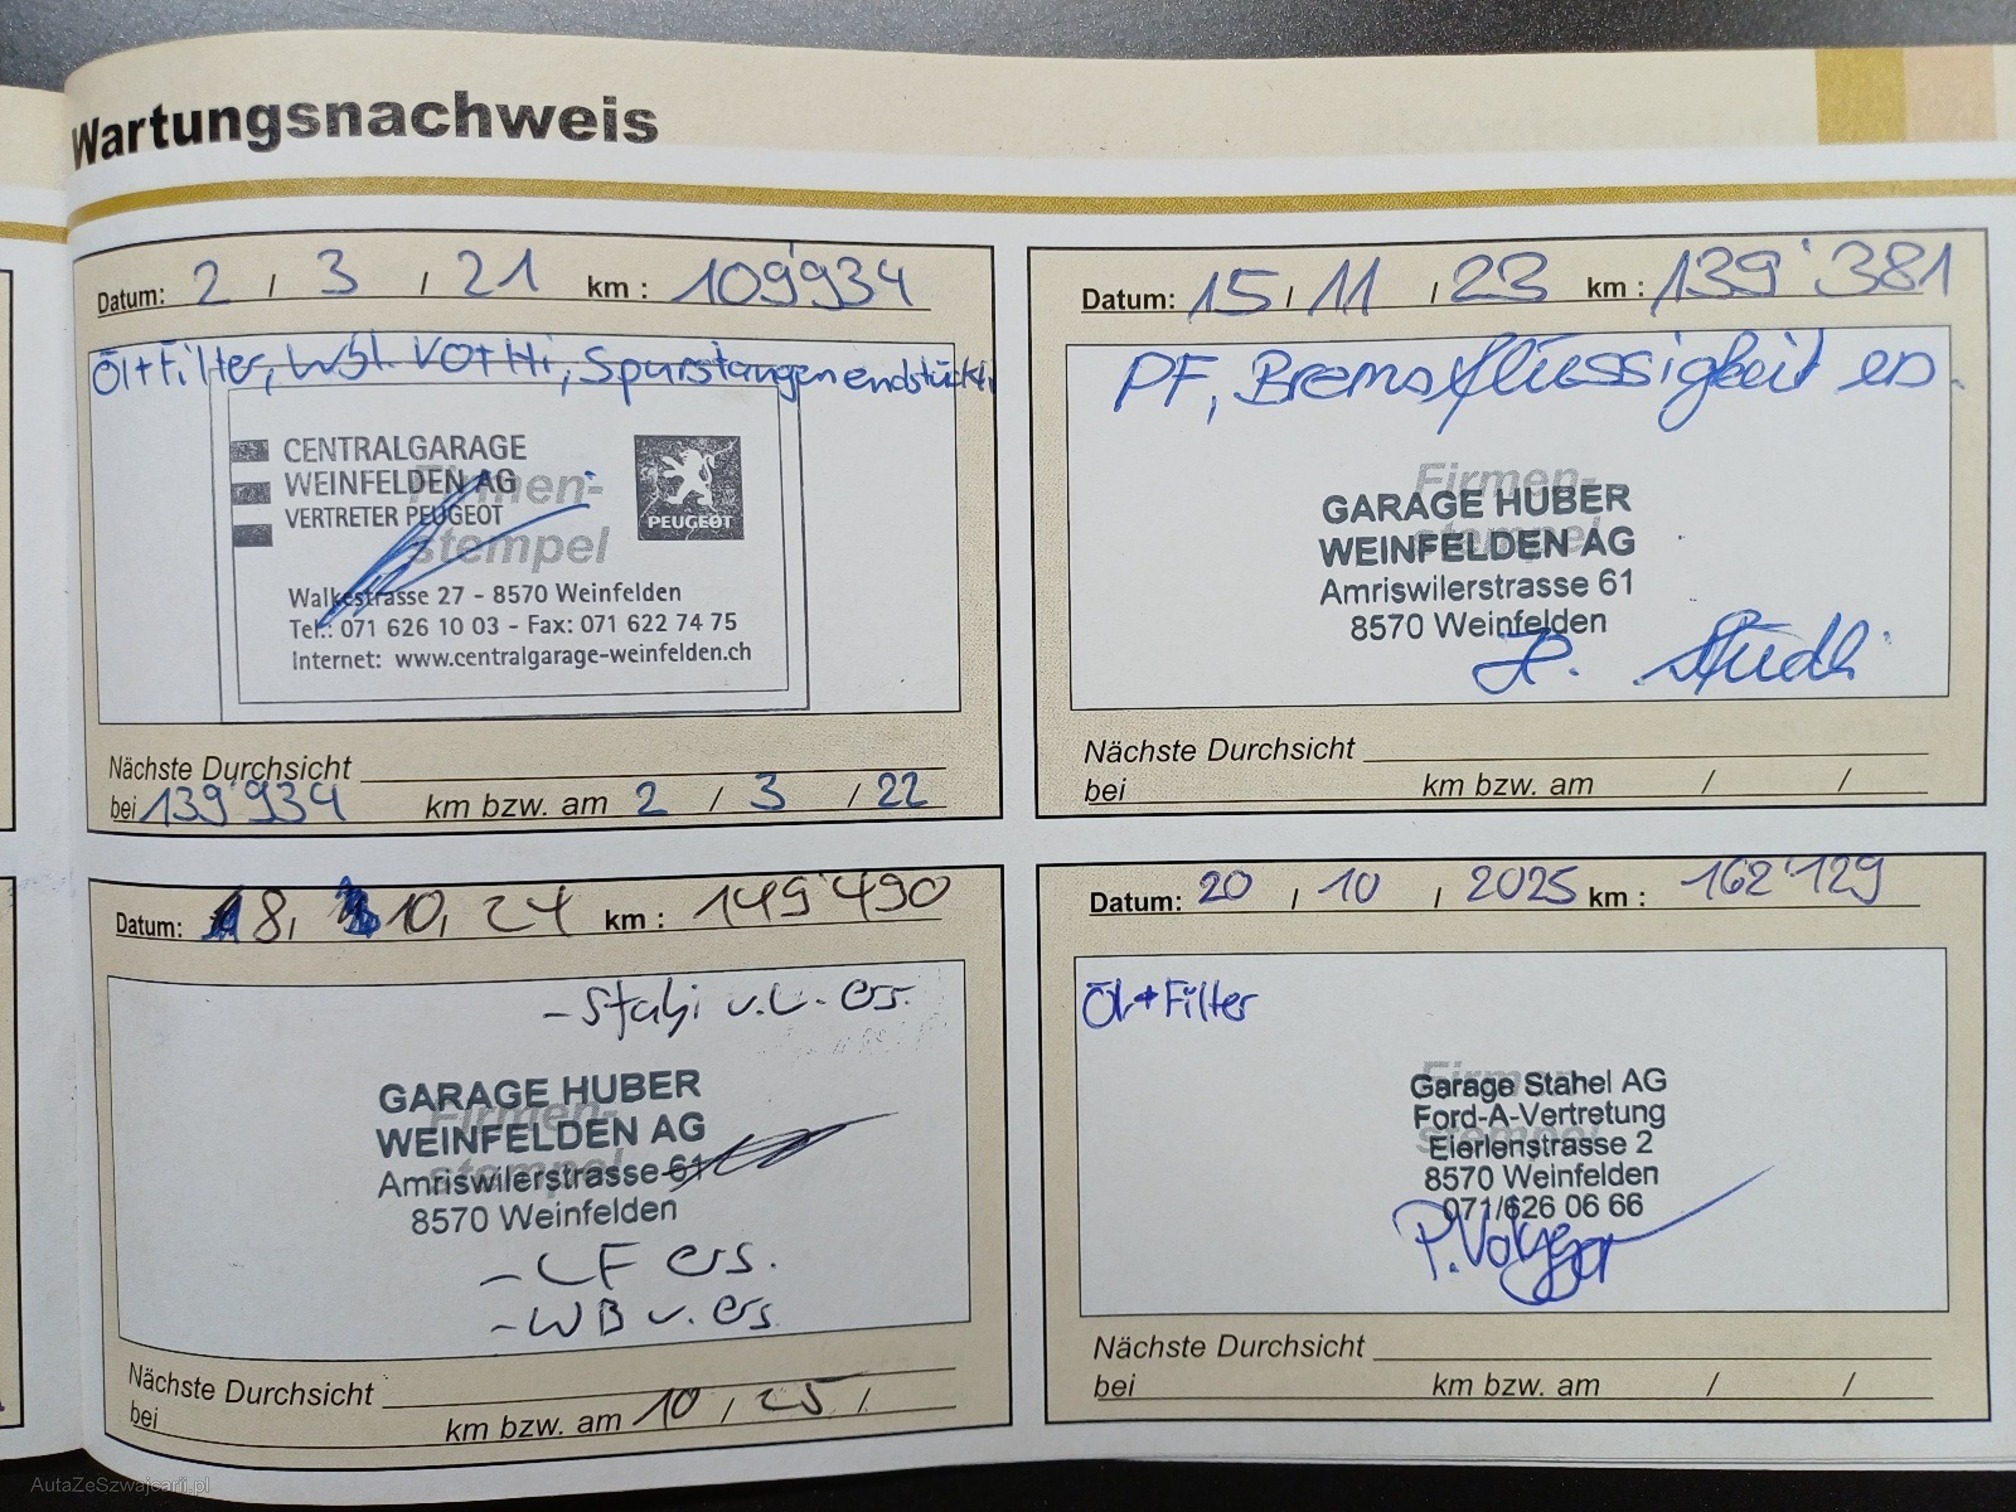 Wartungsnachweis
Datum: 2 / 3 / 21 km : 109'934
Öl+Filter, Wbl. VO+Hi, Spurstangenendstück
CENTRALGARAGE
WEINFELDEN AG
VERTRETER PEUGEOT
PEUGEOT
Firmen-
stempel
Walkestrasse 27 - 8570 Weinfelden
Tel.: 071 626 10 03 - Fax: 071 622 74 75
Internet: www.centralgarage-weinfelden.ch
Nächste Durchsicht
bei 139'934 km bzw. am 2 / 3 / 22
Datum: 15 / 11 / 23 km : 139'381
PF, Bremsflüssigkeit es.
Firmen-
stempel
GARAGE HUBER
WEINFELDEN AG
Amriswilerstrasse 61
8570 Weinfelden
Nächste Durchsicht
bei km bzw. am / /
Datum: 18, 10, 24 km : 149'490
- Stabi v.L. ers.
Firmen-
stempel
GARAGE HUBER
WEINFELDEN AG
Amriswilerstrasse 61
8570 Weinfelden
- LF ers.
- WB v. ers.
Nächste Durchsicht
bei km bzw. am 10 / 25 /
Datum: 20 / 10 / 2025 km : 162'129
Öl+Filter
Firmen-
stempel
Garage Stahel AG
Ford-A-Vertretung
Eierlenstrasse 2
8570 Weinfelden
071/626 06 66
Nächste Durchsicht
bei km bzw. am / /
AutaZeSzwajcarii.pl